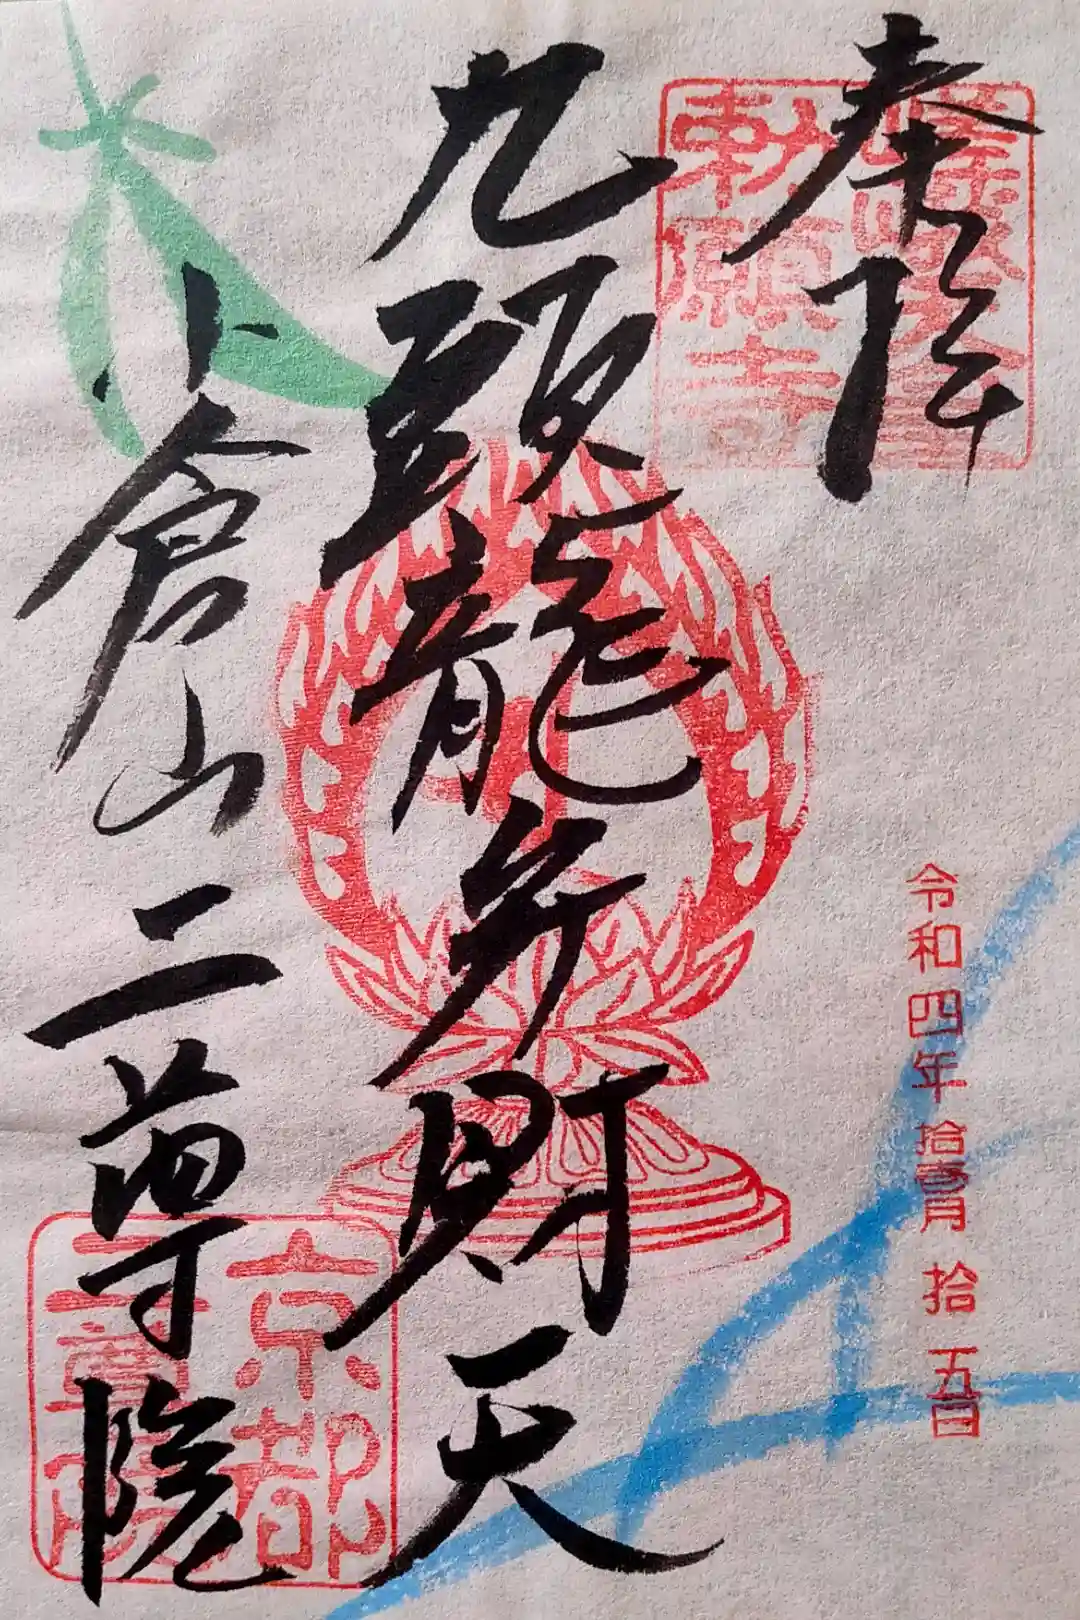 奉拝
九頭龍弁財天
小倉山二尊院
勅願寺
京都
二尊院
令和四年拾壱月拾五日